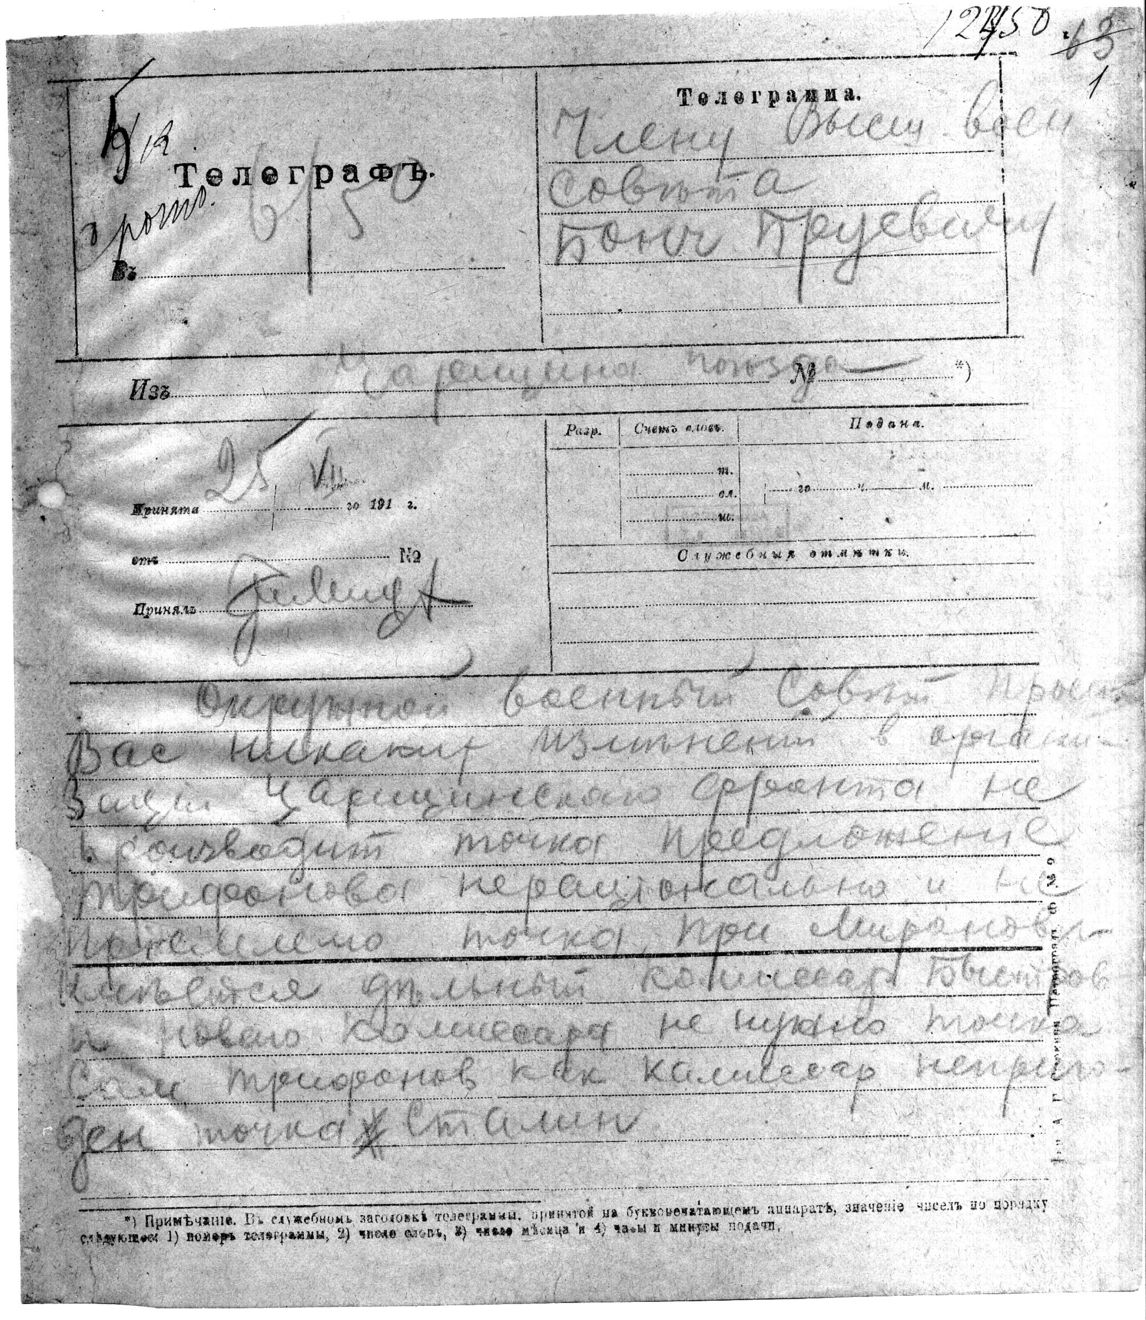 12750
63
1
Телеграмма.
Члену Высш воен
Совѣта
Бонч Бруевичу
Телеграфъ.
6/50
Въ
Изъ Царицына поезда № *)
Разр. Счетъ словъ. Подана.
25 VII
Принята го 191 г.
т.
сл. го ч. м.
ш.
отъ №
Служебныя отмѣтки.
Принялъ
Окружной военный Совѣт просит
Вас никаких измѣнений в органи-
зации Царицинскаго фронта не
производит точка предложение
Трифонова нерационально и не
приемлемо точка при Миронови-
имѣется дѣльный комиссар Быстров
и новаго комиссара не нужно точка
Сам Трифонов как камиссар неприго-
ден точка Сталин
*) Примѣчаніе. Въ служебномъ заголовкѣ телеграммы, принятой на буквопечатающемъ аппаратѣ, значеніе чиселъ по порядку
слѣдующее: 1) номеръ телеграммы, 2) число словъ, 3) число мѣсяца и 4) часы и минуты подачи.